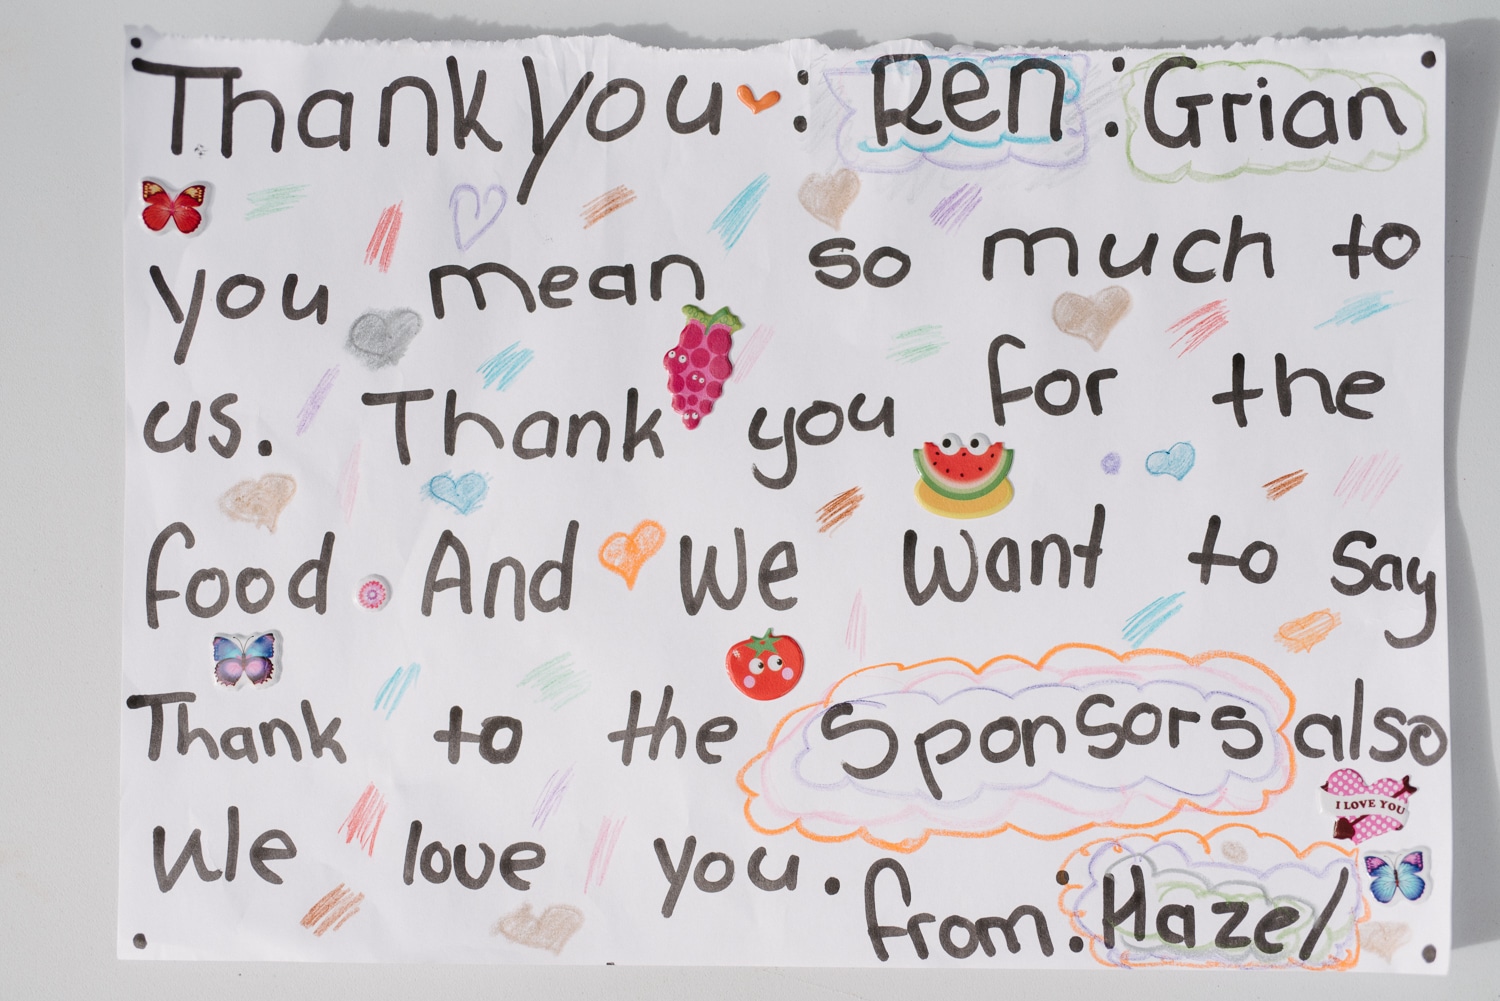 Thank you : Ren : Grian
you mean so much to
us. Thank you for the
food. And We want to say
Thank to the Sponsors also
I LOVE YOU
We love you.
from: Hazel